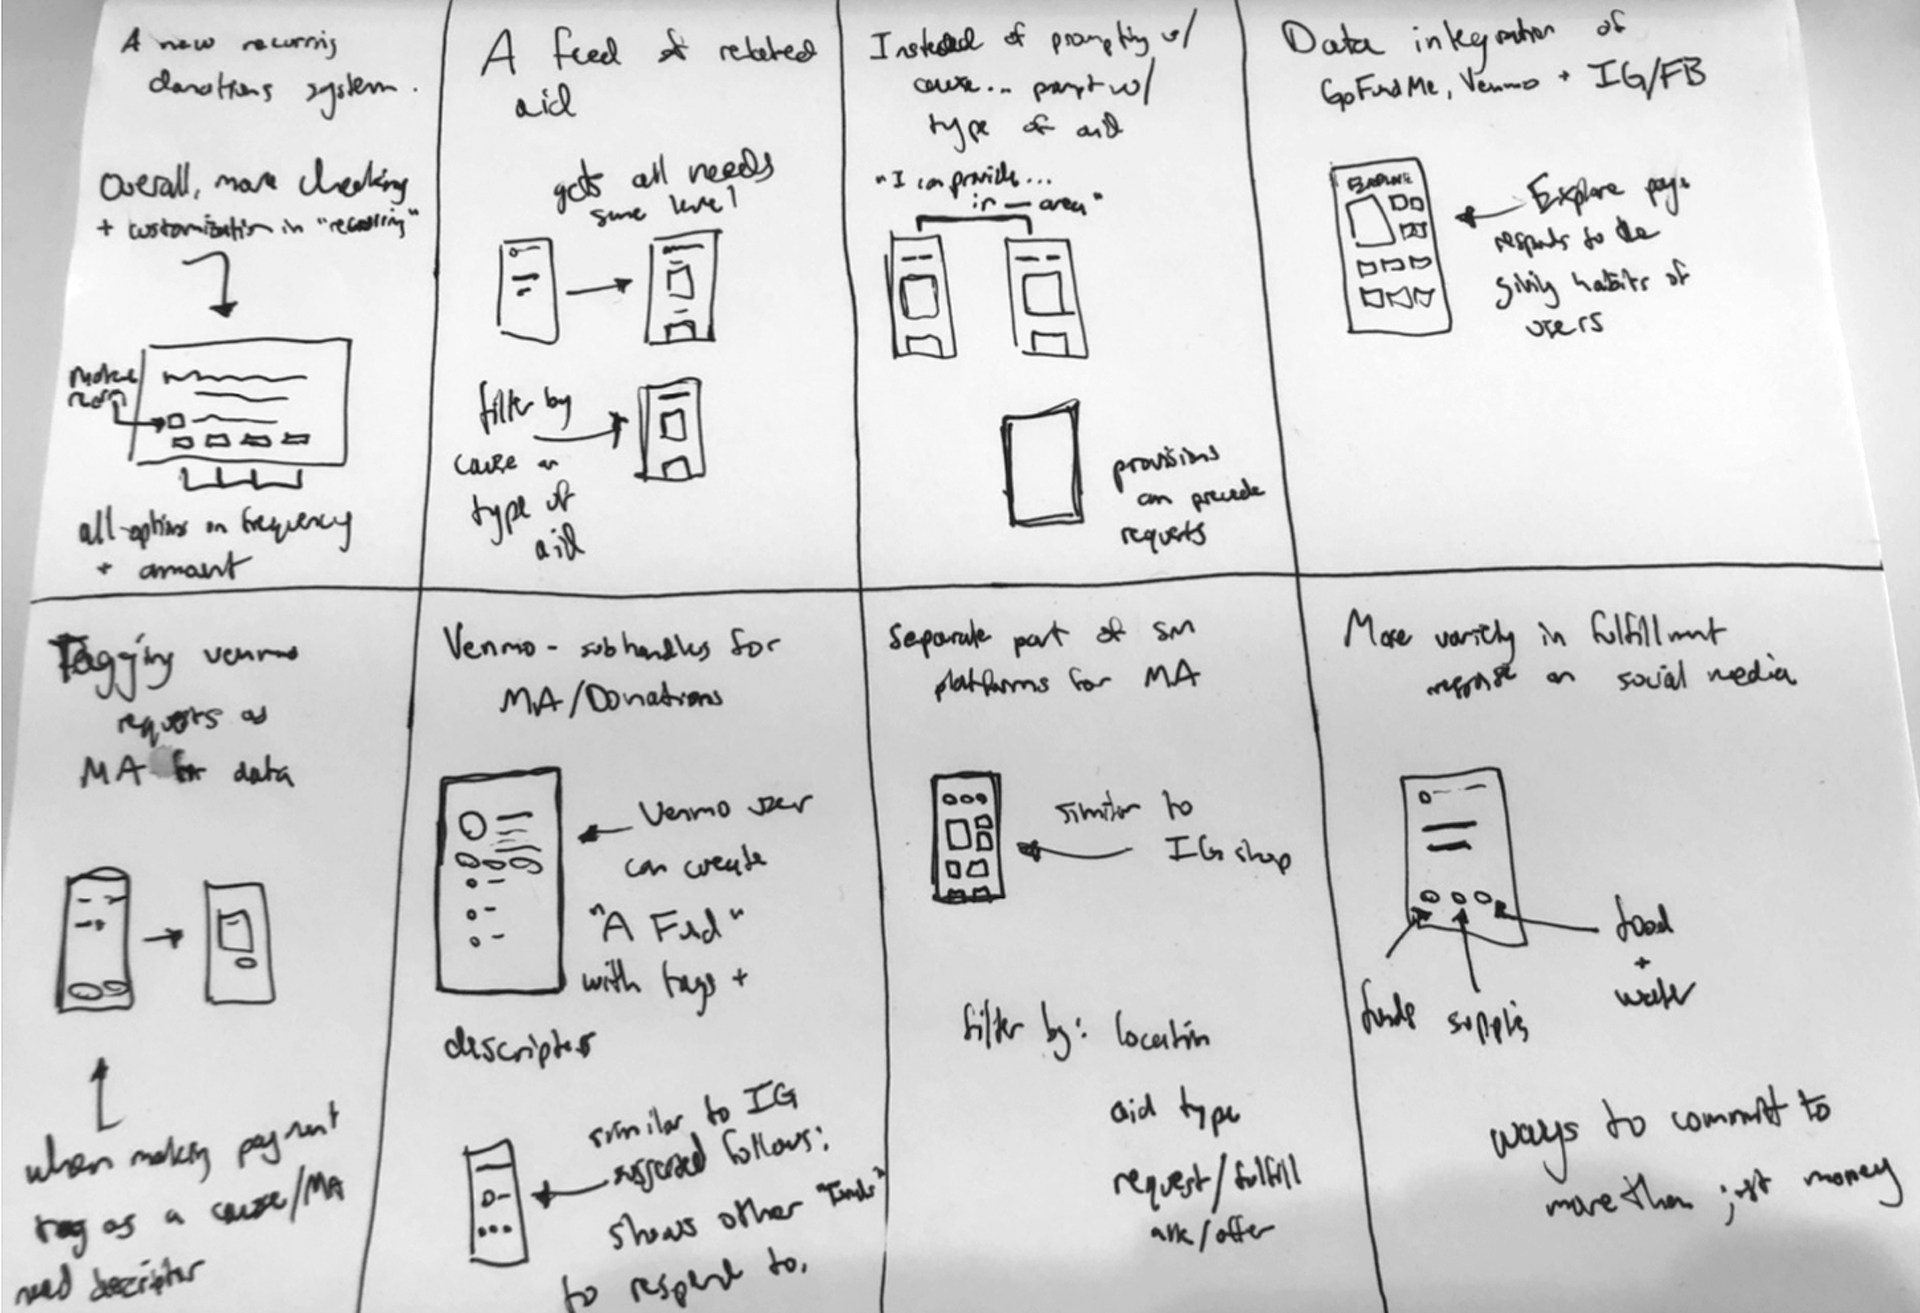 A new recurring
donations system.
Overall, more checking
+ customization in "recurring"
make
all options on frequency
+ amount
A feed of related
aid
gets all needs
same level
filter by
cause or
type of
aid
Instead of prompting w/
cause... prompt w/
type of aid
"I can provide...
in — area"
provisions
can precede
requests
Data integration of
GoFundMe, Venmo + IG/FB
EXPLORE
Explore page
responds to the
giving habits of
users
Tagging venmo
requests as
MA for data
when making payment
tag as a cause/MA
need descriptor
Venmo - subhandles for
MA/Donations
Venmo user
can create
"A Fund"
with tags +
descriptors
similar to IG
suggested follows:
shows other "Funds"
to respond to.
Separate part of SM
platforms for MA
similar to
IG shop
filter by: location
aid type
request/fulfill
ask/offer
More variety in fulfillment
response on social media
food
+
water
funds supplies
ways to commit to
more than just money